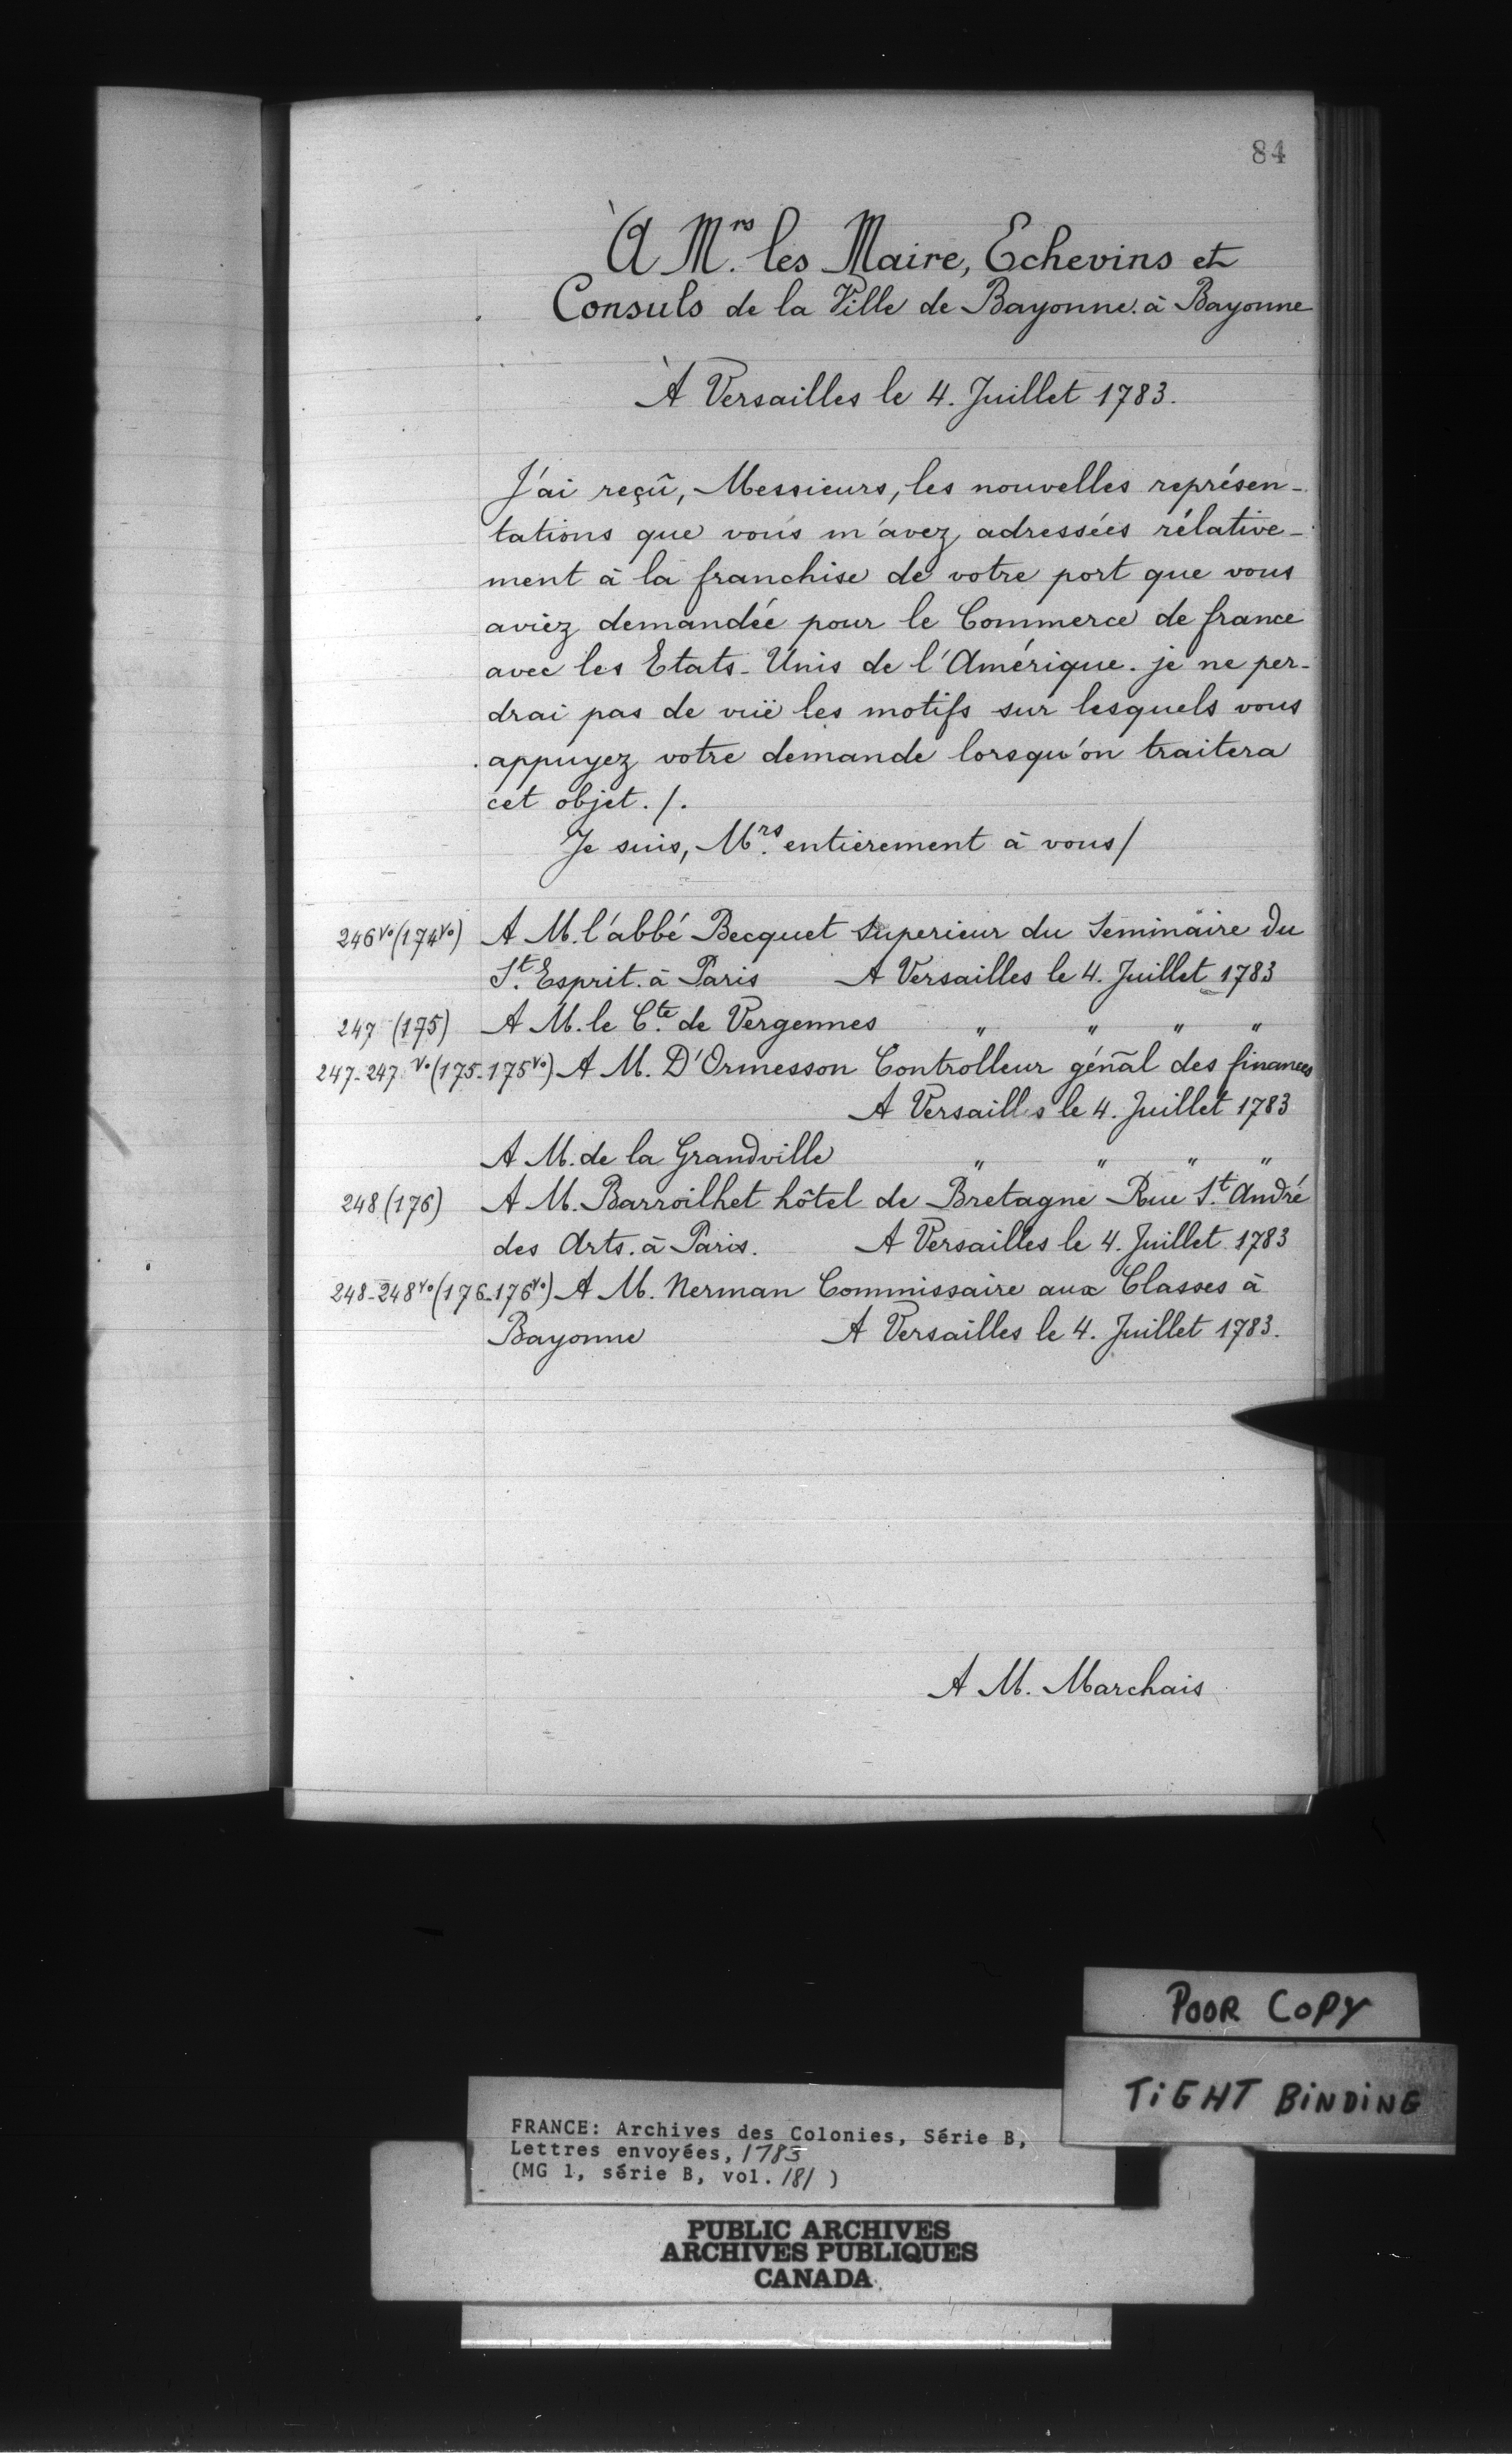 84
À M.rs les Maire, Echevins et
Consuls de la Ville de Bayonne. à Bayonne
À Versailles le 4. Juillet 1783.
J'ai reçû, Messieurs, les nouvelles représen-
tations que vous m'avez adressées rélative-
ment à la franchise de votre port que vous
aviez demandée pour le Commerce de france
avec les Etats-Unis de l'Amérique. je ne per-
drai pas de vuë les motifs sur lesquels vous
appuyez votre demande lorsqu'on traitera
cet objet. /.
Je suis, M.rs entièrement à vous /
246vo (174vo) A M. l'abbé Becquet Superieur du Seminaire du
St. Esprit. à Paris A Versailles le 4. Juillet 1783
247 (175) A M. le Cte. de Vergennes " " " "
247-247vo (175-175vo) A M. D'Ormesson Controlleur géñal des finances
A Versailles le 4. Juillet 1783
A M. de la Grandville " " " "
248 (176) A M. Barroilhet hôtel de Bretagne Rue St. André
des Arts. à Paris. A Versailles le 4. Juillet 1783
248-248vo (176-176vo) A M. Nerman Commissaire aux Classes à
Bayonne A Versailles le 4. Juillet 1783.
A M. Marchais
POOR COPY
TiGHT BiNDiNG
FRANCE: Archives des Colonies, Série B,
Lettres envoyées, 1783
(MG 1, série B, vol. 181 )
PUBLIC ARCHIVES
ARCHIVES PUBLIQUES
CANADA